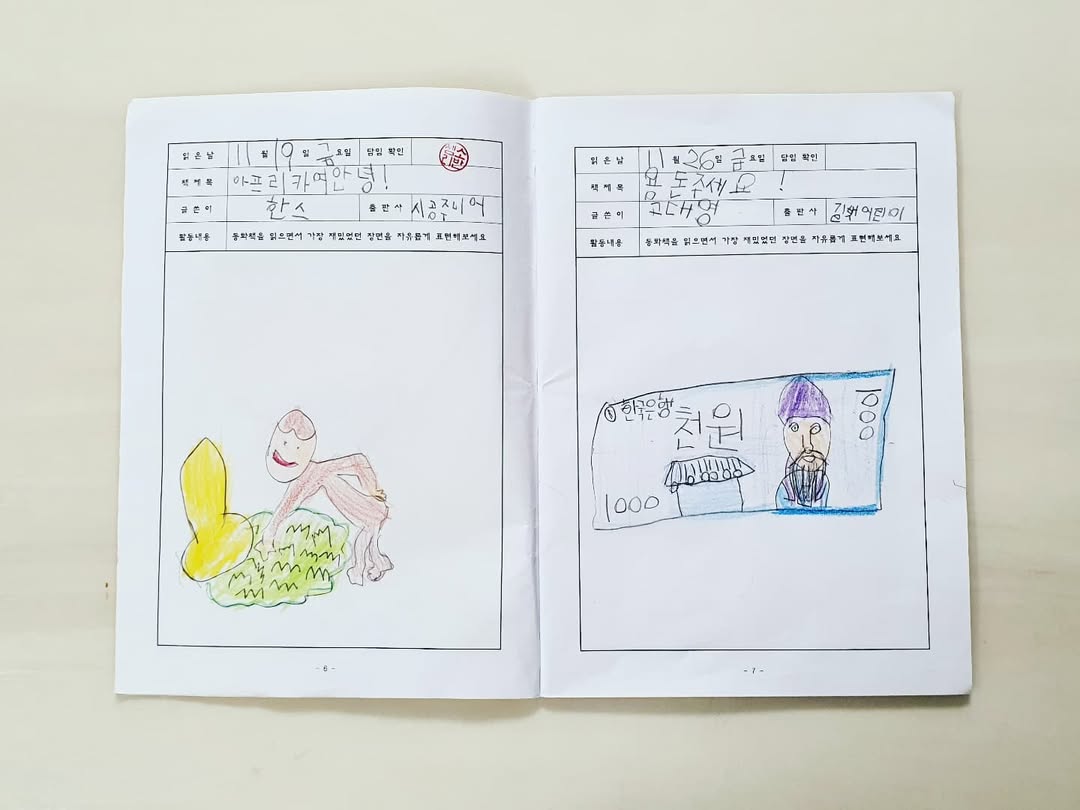 읽은날 11월 19일 금요일 담임 확인
책제목 아프리카여안녕!
글쓴이 한스 출판사 시공주니어
활동내용 동화책을 읽으면서 가장 재밌었던 장면을 자유롭게 표현해보세요
- 6 -
읽은날 11월 26일 금요일 담임 확인
책제목 용돈주세요!
글쓴이 고대영 출판사 길벗어린이
활동내용 동화책을 읽으면서 가장 재밌었던 장면을 자유롭게 표현해보세요
한국은행
천원
1000
1000
- 7 -